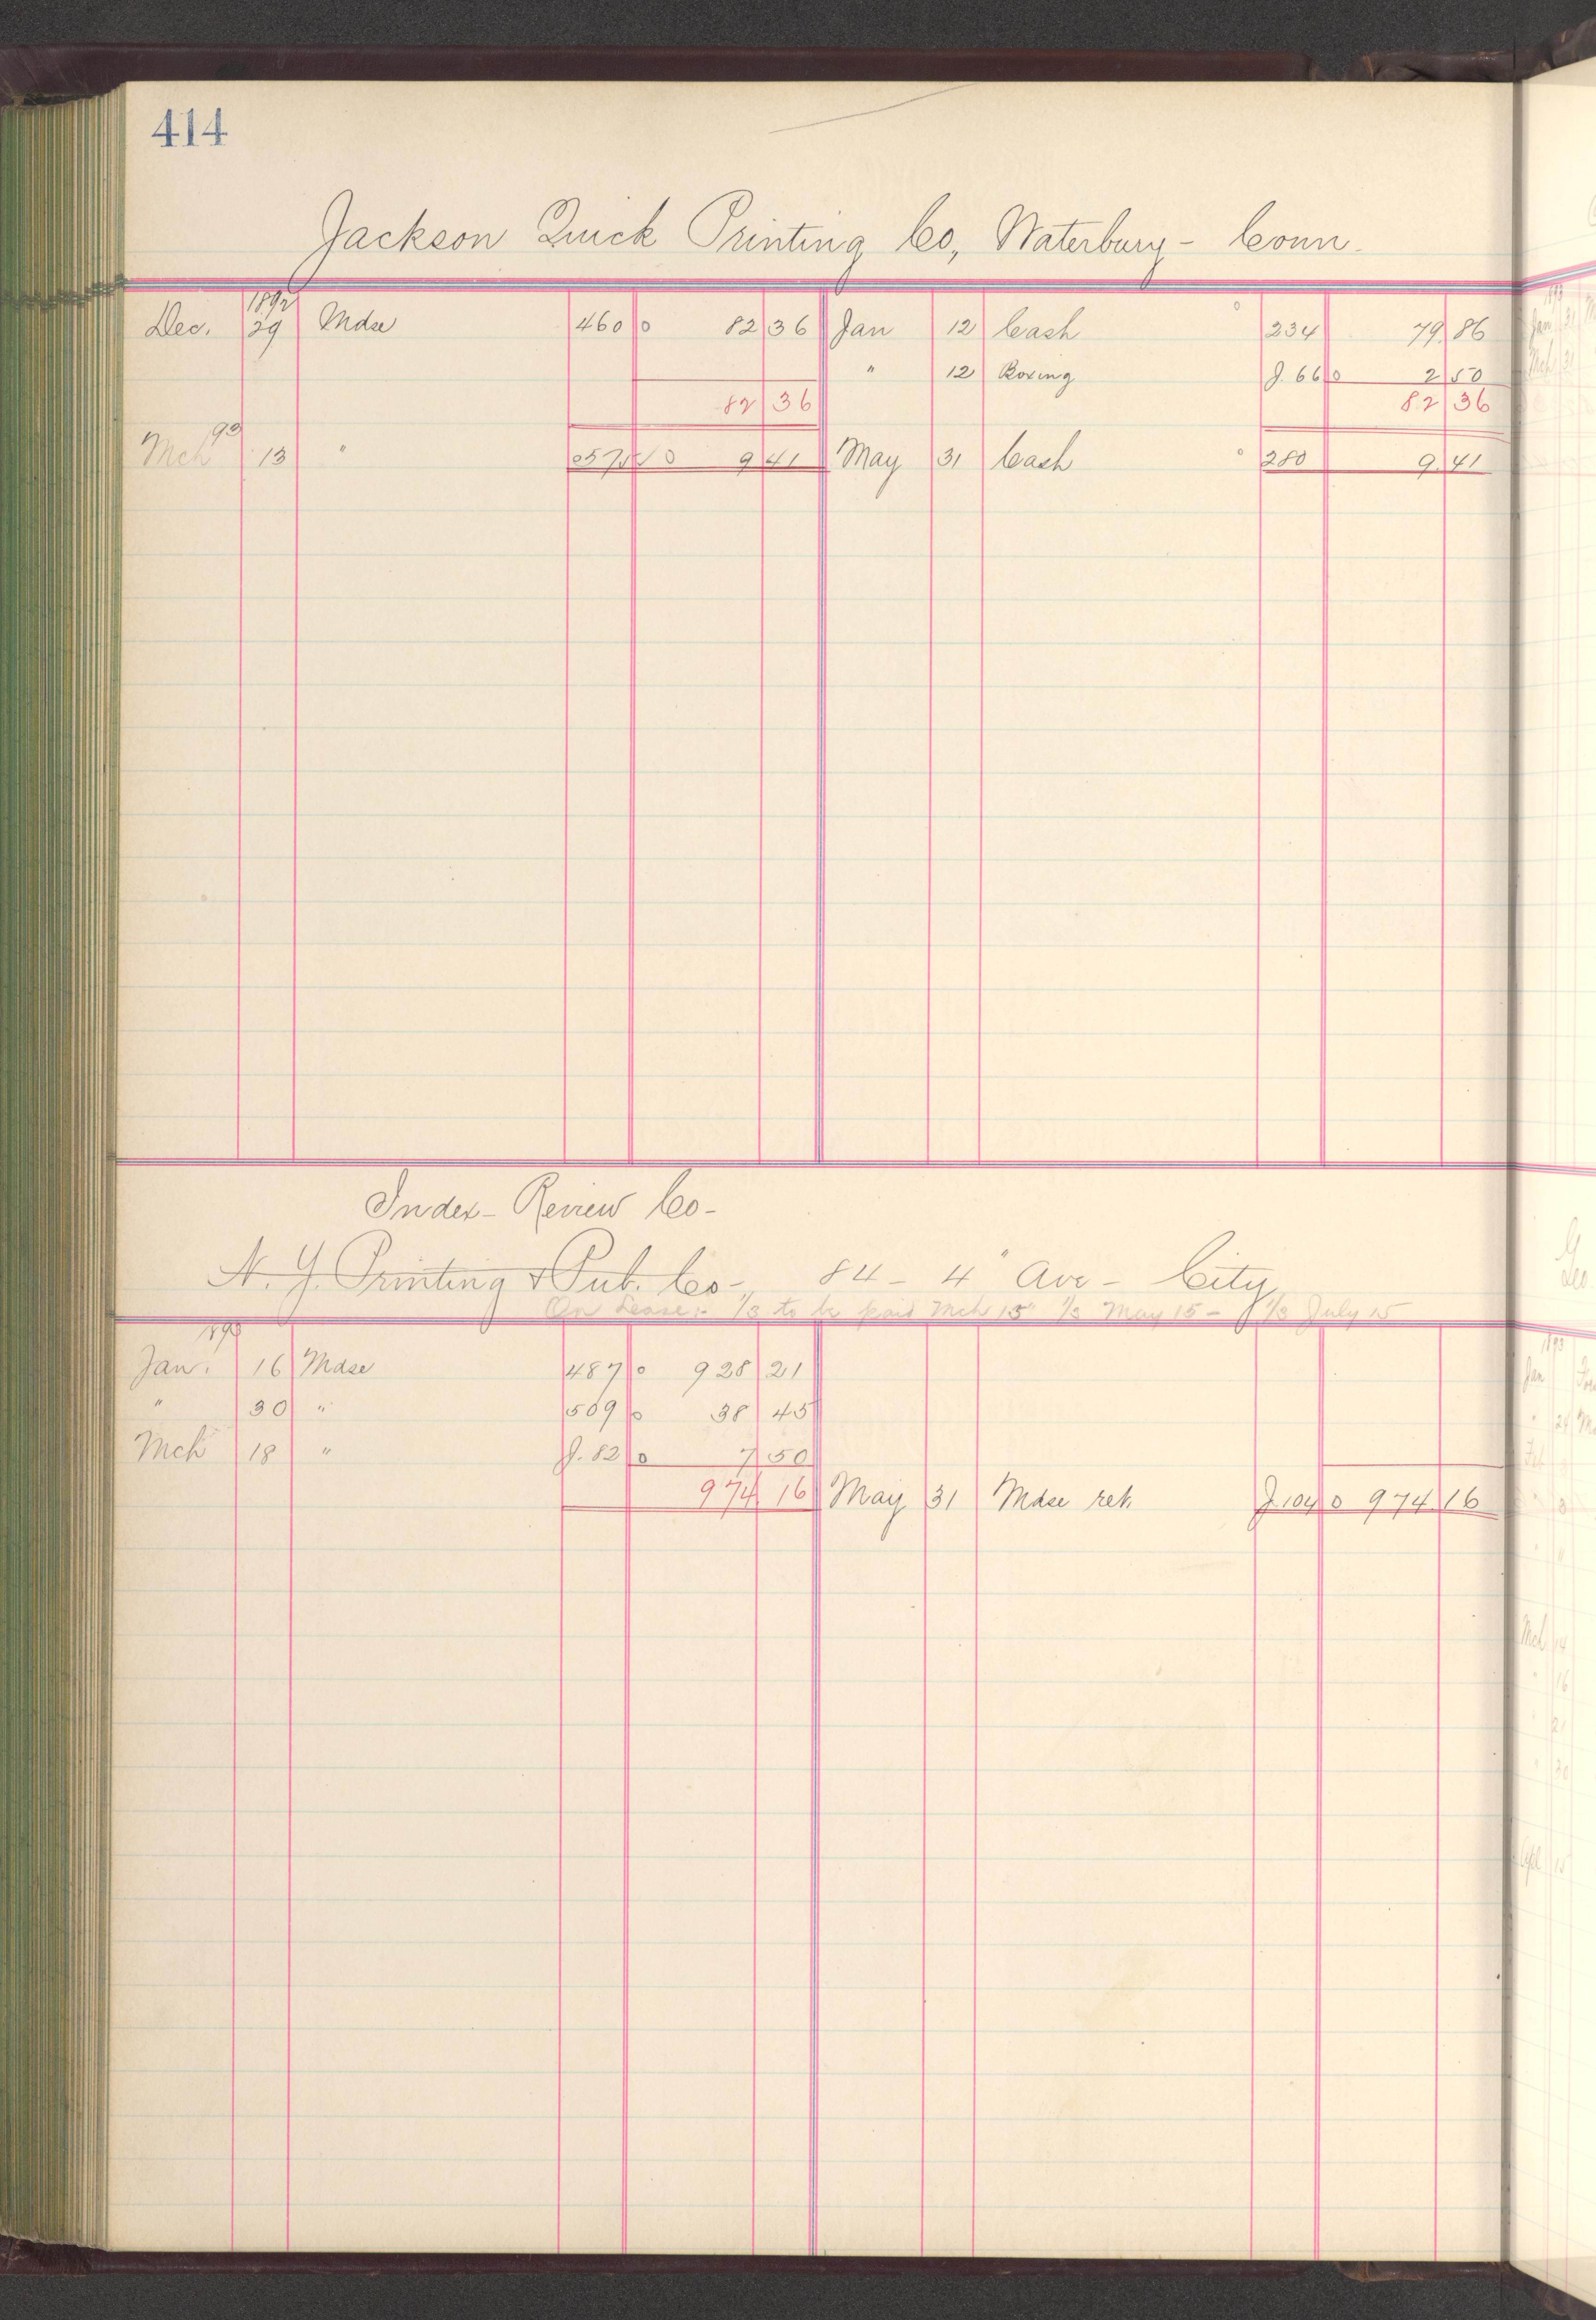 414
Jackson Quick Printing Co, Waterbury - Conn.
1892
Dec. 29 Mdse 460 0 82 36 Jan 12 Cash 234 79. 86
" 12 Boxing J. 66 0 2 50
82 36 82 36
93
Mch 13 " 0 9 41 May 31 Cash 280 9. 41
Index - Review Co -
N. Y. Printing & Pub. Co -, 84 - 4" Ave - City
On Lease:- 1/3 to be paid Mch 15" 1/3 May 15 - 1/3 July 15
1893
Jan. 16 Mdse 487 0 928 21
" 30 " 509 0 38 45
Mch 18 " J. 82 0 7 50
974 16 May 31 Mdse ret. J. 104 0 974 16